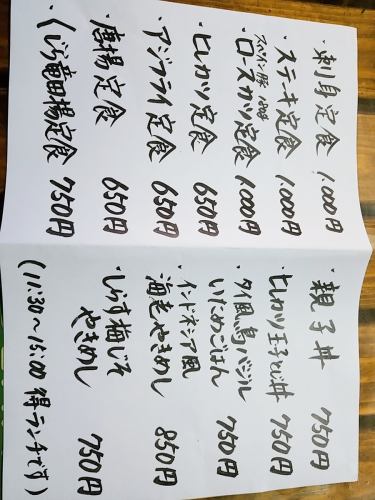 ・刺身定食 1,000円
・ステーキ定食 1,000円
スペイン豚
・ロースカツ定食 1,000円
・ヒレカツ定食 650円
・アジフライ定食 650円
・唐揚定食 650円
・くじら竜田揚定食 750円
・親子丼 750円
・ヒレカツ玉子とじ丼 750円
・タイ風鳥バジル
いためごはん 750円
・インドネシア風
海老やきめし 850円
・しらす梅じそ
やきめし 750円
(11:30〜15:00 得ランチです)